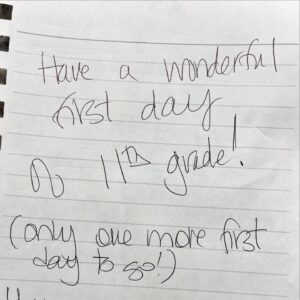 Have a wonderful
first day
of 11th grade!
(only one more first
day to go!)